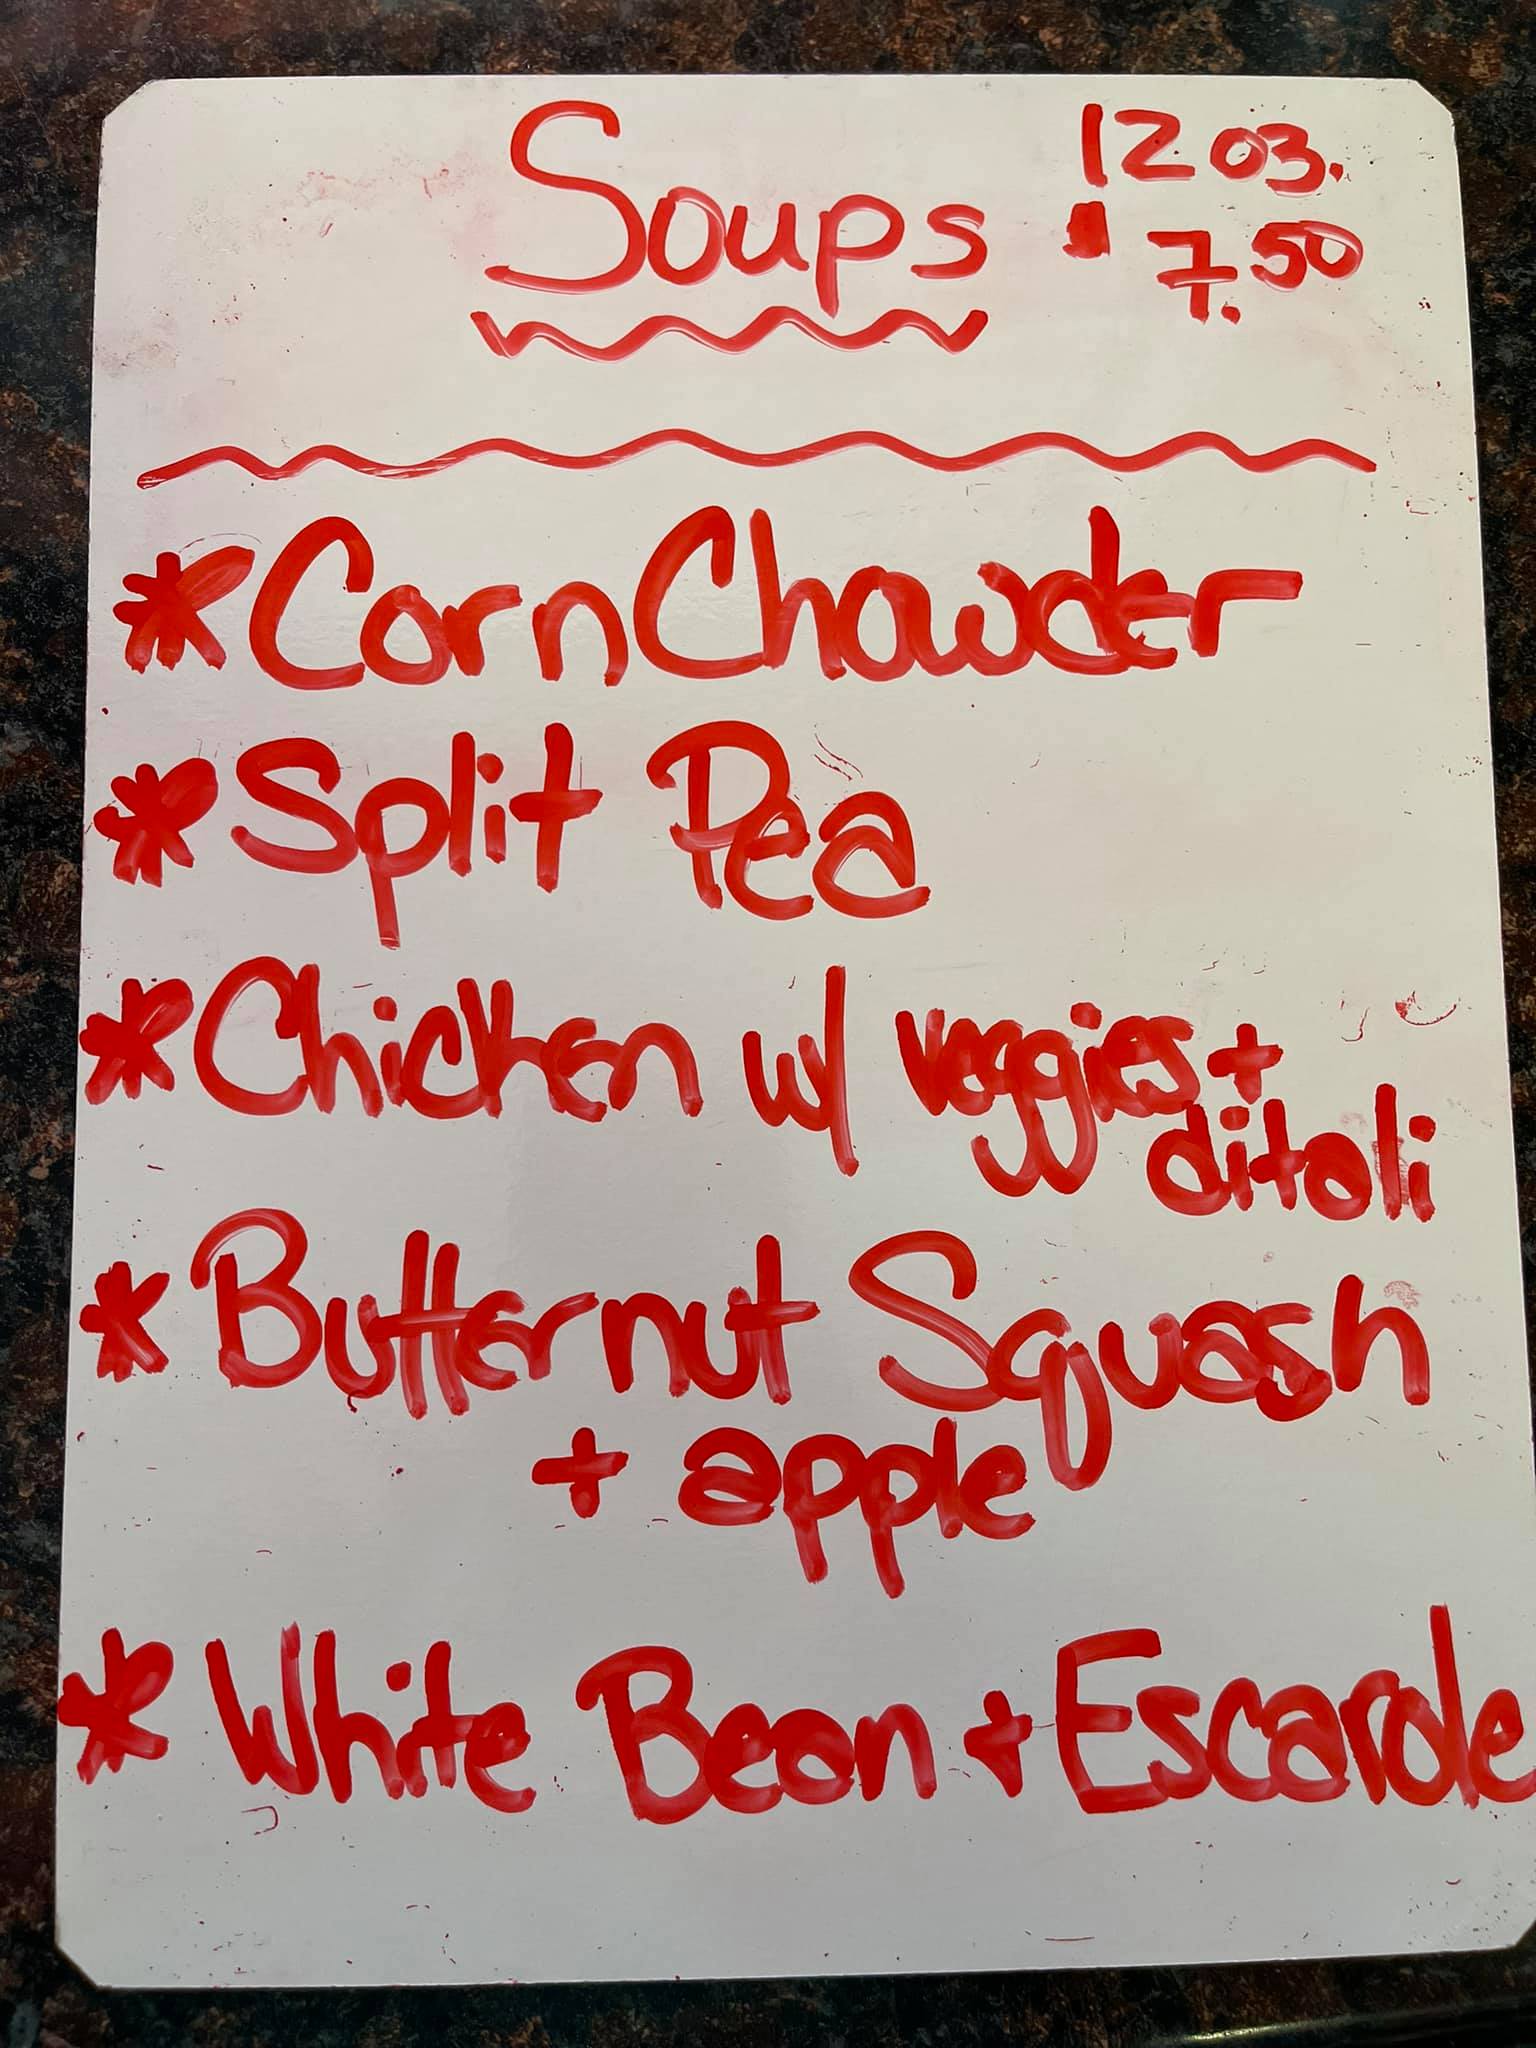 Soups
12 oz.
$ 7.50
* Corn Chowder
* Split Pea
* Chicken w/ veggies +
ditali
* Butternut Squash
+ apple
* White Bean + Escarole